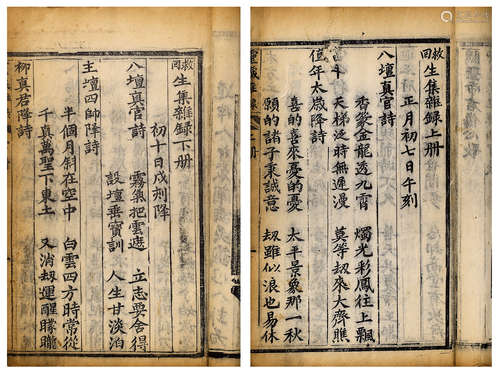 救
回生集雜錄上册
正月初七日午刻
八壇真官詩
香裊金龍透九霄　燭光彩鳳往上飄
天梯泛時無運漫　莫等刼來大齊瞧
值年太歲降詩
喜的喜來憂的憂　太平景象那一秋
願的諸子秉誠意　刼雖似浪也易休
救
回生集雜錄下册
初十日戌刻降
八壇真官詩
霧氣把雲遮　立志要舍得
設壇垂寶訓　人生甘淡泊
主壇四帥降詩
半個月斜在空中　白雲四方時常從
千真萬聖下東土　又消刼運醒朦朧
柳真君降詩